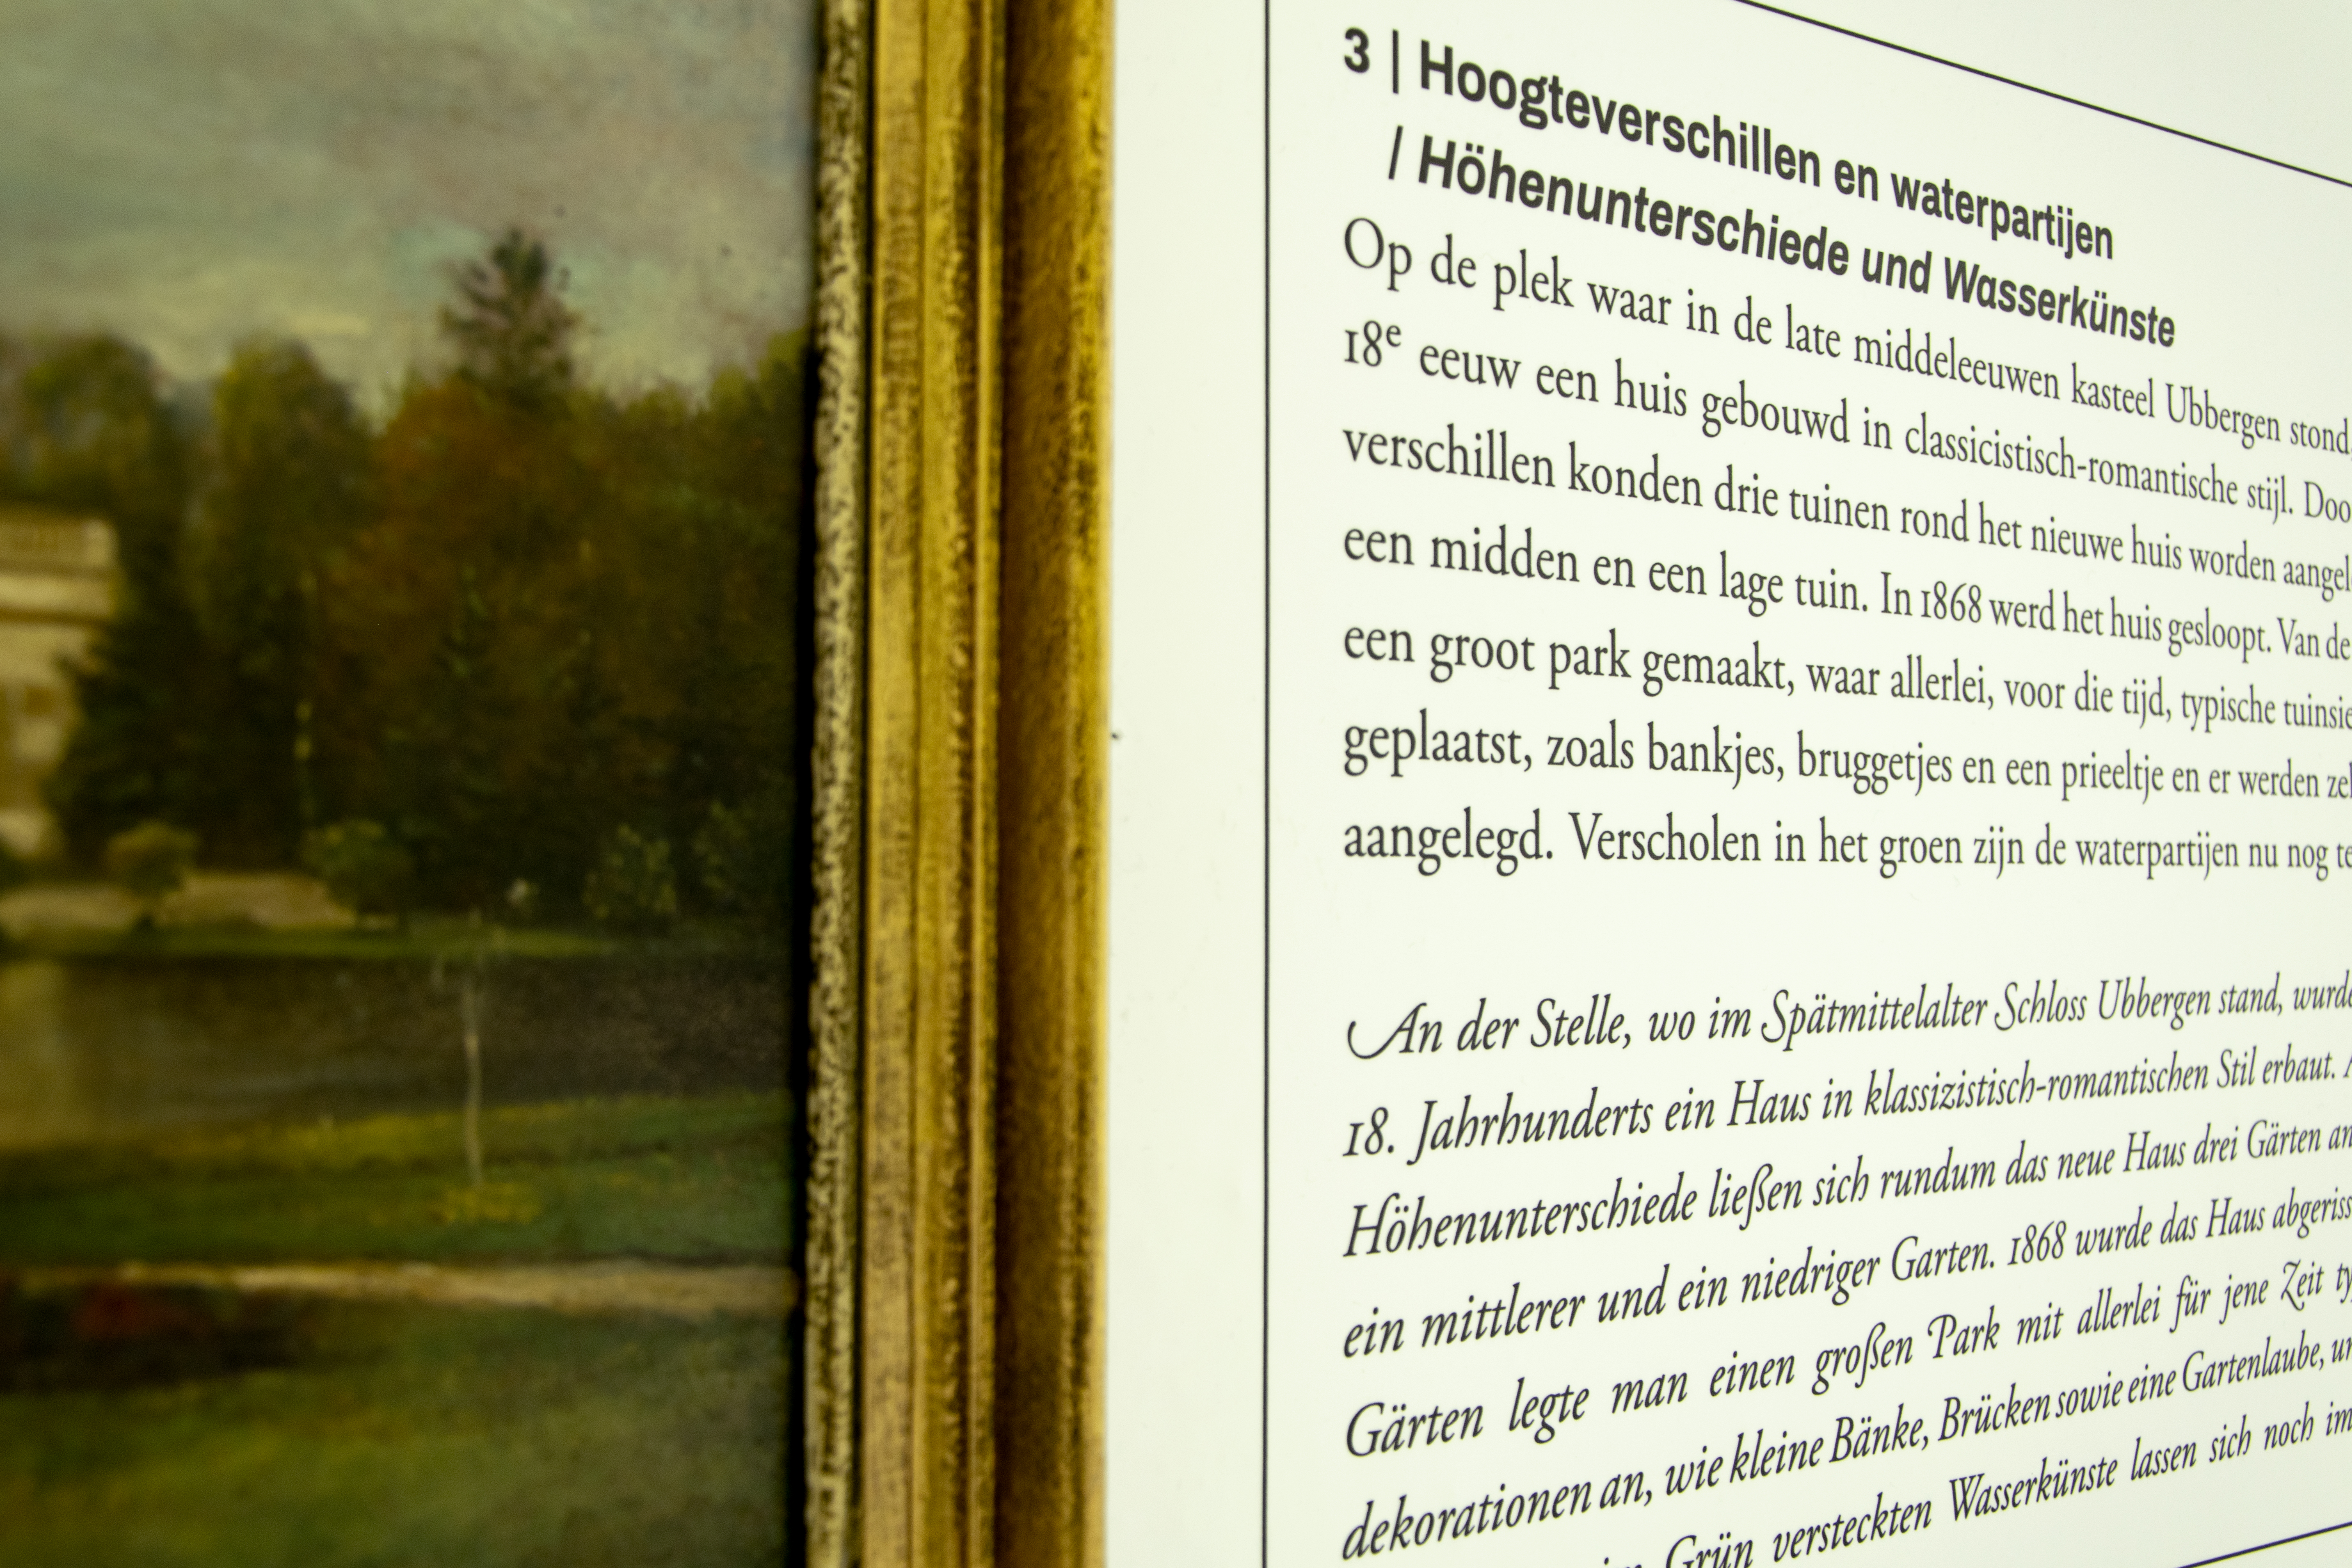 3 | Hoogteverschillen en waterpartijen
/ Höhenunterschiede und Wasserkünste
Op de plek waar in de late middeleeuwen kasteel Ubbergen stond,
18e eeuw een huis gebouwd in classicistisch-romantische stijl.
verschillen konden drie tuinen rond het nieuwe huis worden
een midden en een lage tuin. In 1868 werd het huis gesloopt. Van de
een groot park gemaakt, waar allerlei, voor die tijd, typische
geplaatst, zoals bankjes, bruggetjes en een prieeltje en er werden
aangelegd. Verscholen in het groen zijn de waterpartijen nu nog
An der Stelle, wo im Spätmittelalter Schloss Ubbergen stand,
18. Jahrhunderts ein Haus in klassizistisch-romantischen Stil erbaut.
Höhenunterschiede ließen sich rundum das neue Haus drei Gärten
ein mittlerer und ein niedriger Garten. 1868 wurde das Haus
Gärten legte man einen großen Park mit allerlei für jene Zeit
dekorationen an, wie kleine Bänke, Brücken sowie eine Gartenlaube,
Grün versteckten Wasserkünste lassen sich noch im